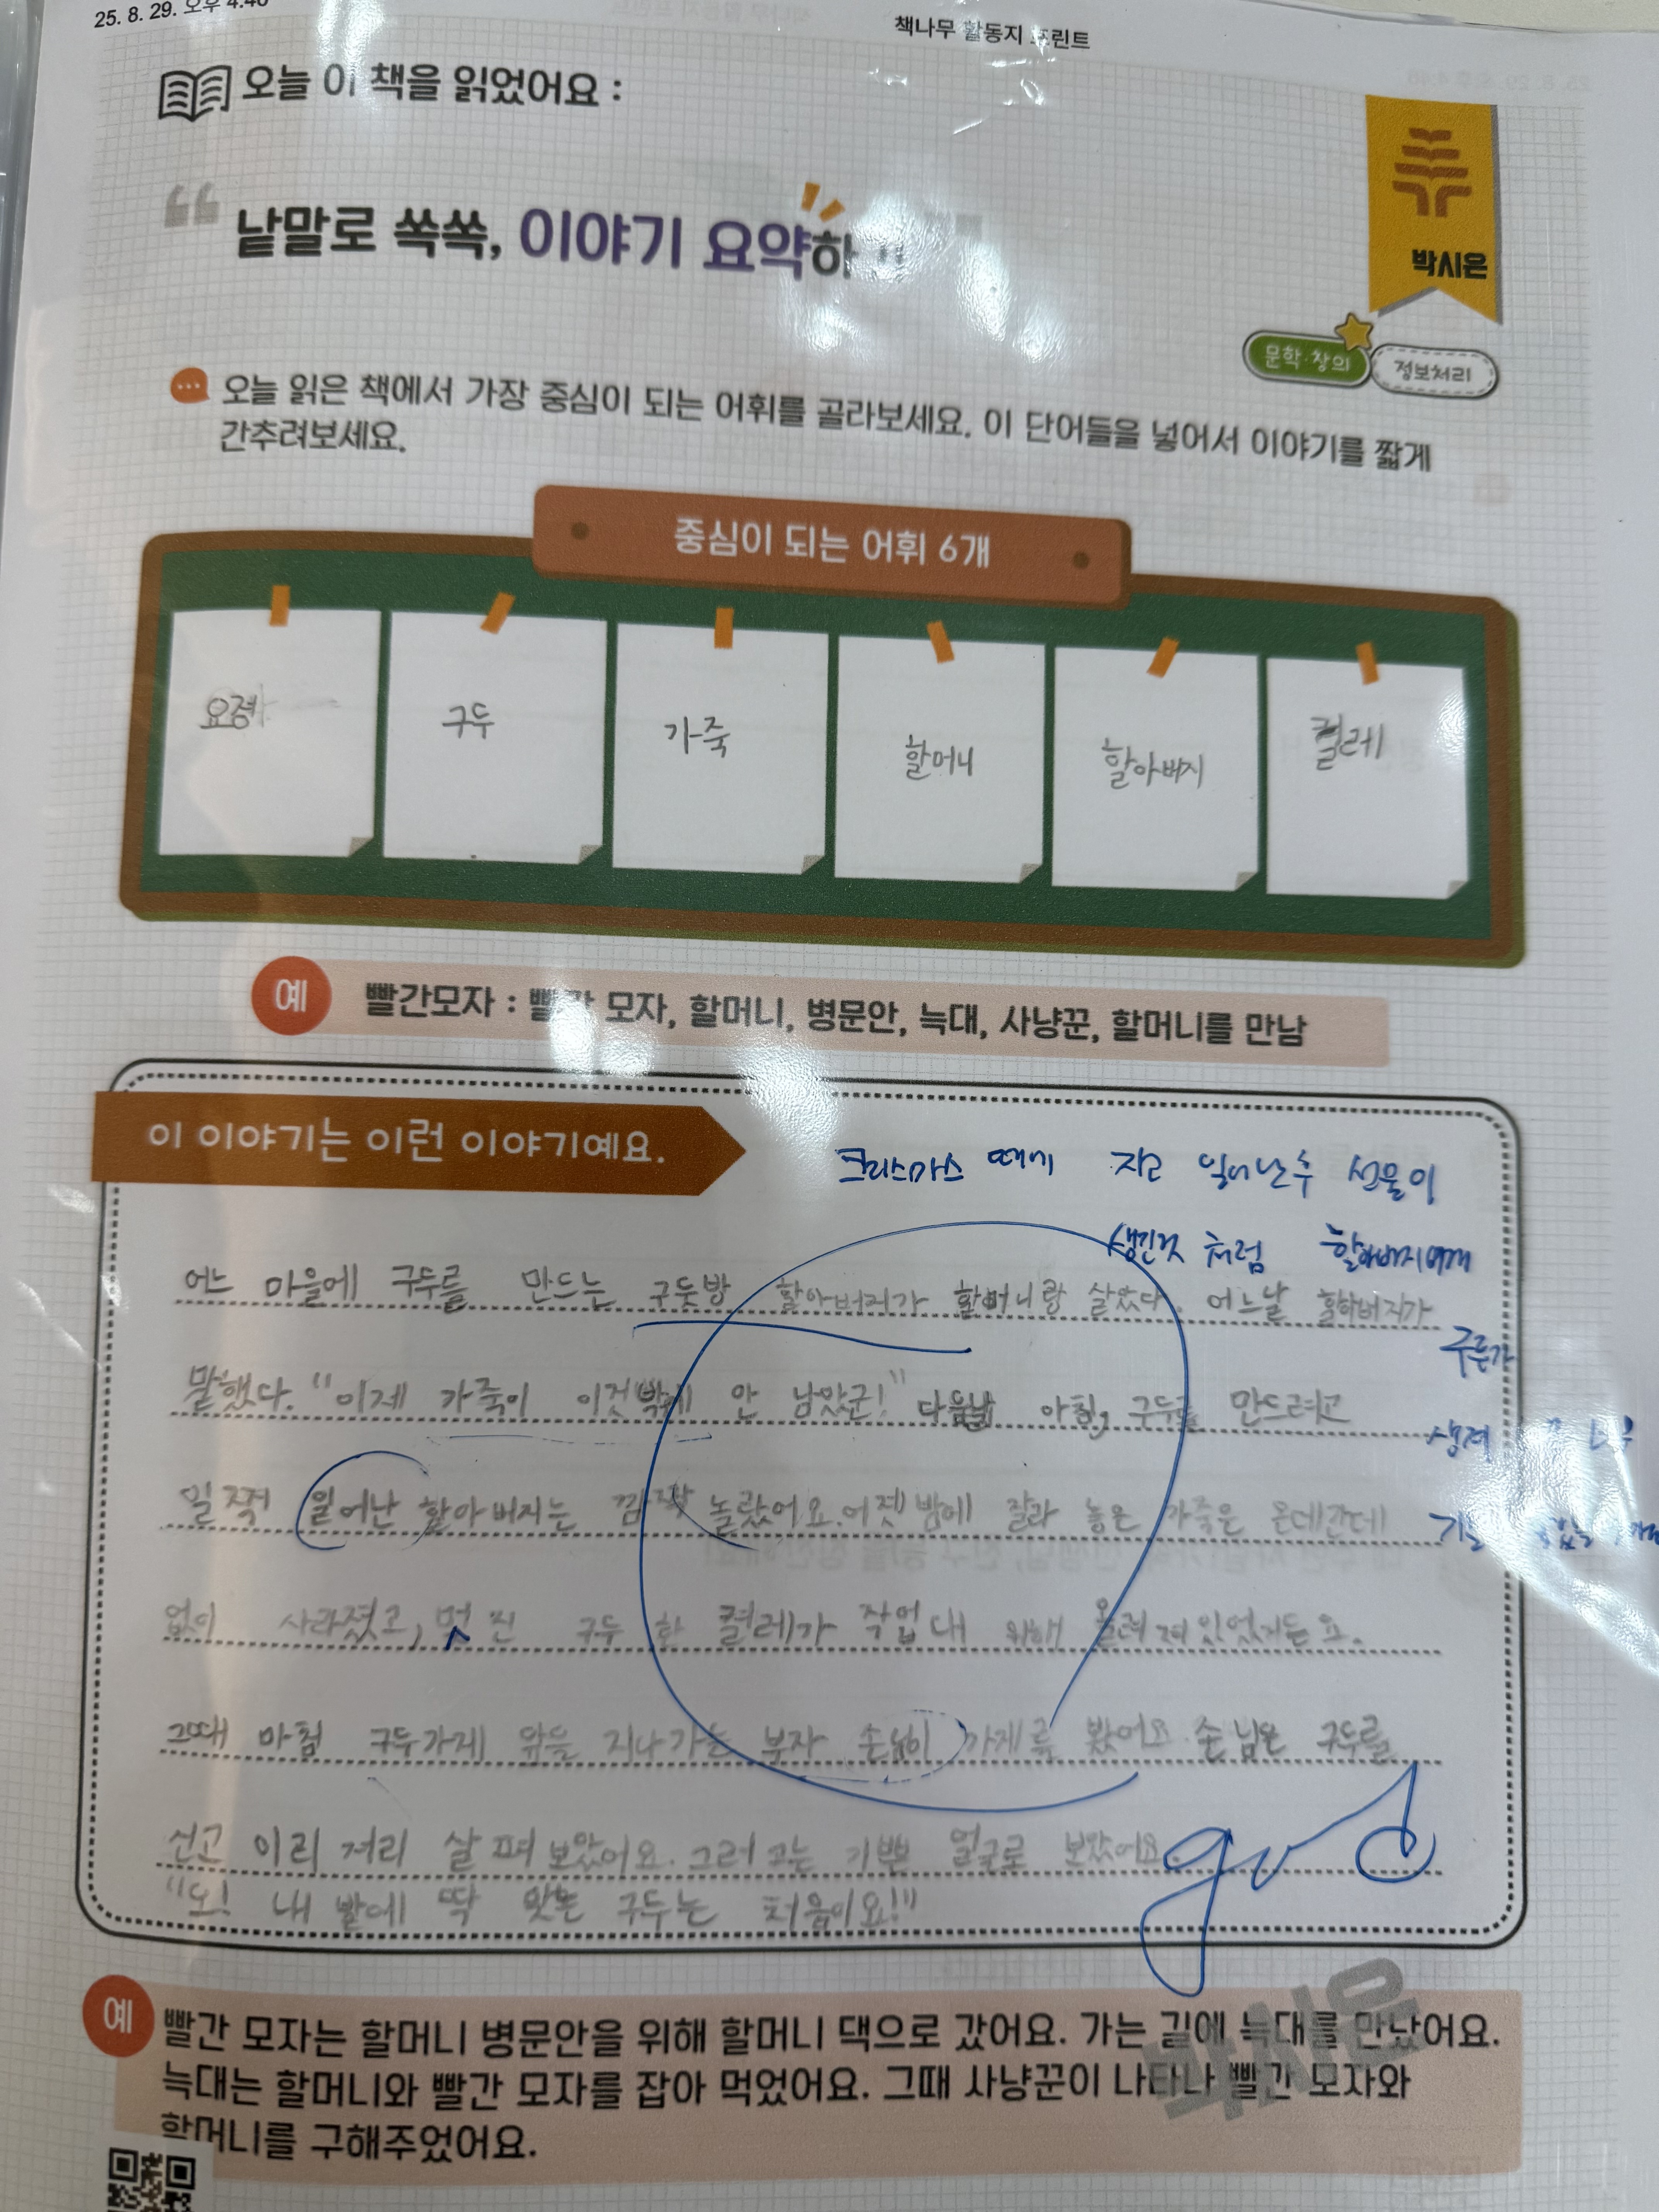 25. 8. 29. 오후 4:46
책나무 활동지 프린트
오늘 이 책을 읽었어요 :
“ 낱말로 쏙쏙, 이야기 요약하
박시은
문학·창의
정보처리
오늘 읽은 책에서 가장 중심이 되는 어휘를 골라보세요. 이 단어들을 넣어서 이야기를 짧게
간추려보세요.
중심이 되는 어휘 6개
요정 구두 가죽 할머니 할아버지 켤레
예 빨간모자 : 빨간 모자, 할머니, 병문안, 늑대, 사냥꾼, 할머니를 만남
이 이야기는 이런 이야기예요.
크리스마스 때에 자고 일어난후 선물이
생긴것 처럼 할아버지에게
어느 마을에 구두를 만드는 구둣방 할아버지가 할머니랑 살았다. 어느날 할아버지가
구두가
말했다. "이제 가죽이 이것밖에 안 남았군!" 다음날 아침, 구두를 만드려고
생겨
일찍 일어난 할아버지는 깜짝 놀랐어요. 어젯밤에 잘라 놓은 가죽은 온데간데
없이 사라졌고, 멋진 구두 한 켤레가 작업대 위해 올려져있었거든요.
그때 마침 구두가게 앞을 지나가는 부자 손님이 가게를 봤어요. 손님은 구두를
신고 이리 저리 살펴보았어요. 그러고는 기쁜 얼굴로 보았어요.
"오! 내 발에 딱 맞는 구두는 처음이요!"
good
예 빨간 모자는 할머니 병문안을 위해 할머니 댁으로 갔어요. 가는 길에 늑대를 만났어요.
늑대는 할머니와 빨간 모자를 잡아 먹었어요. 그때 사냥꾼이 나타나 빨간 모자와
할머니를 구해주었어요.
박시은